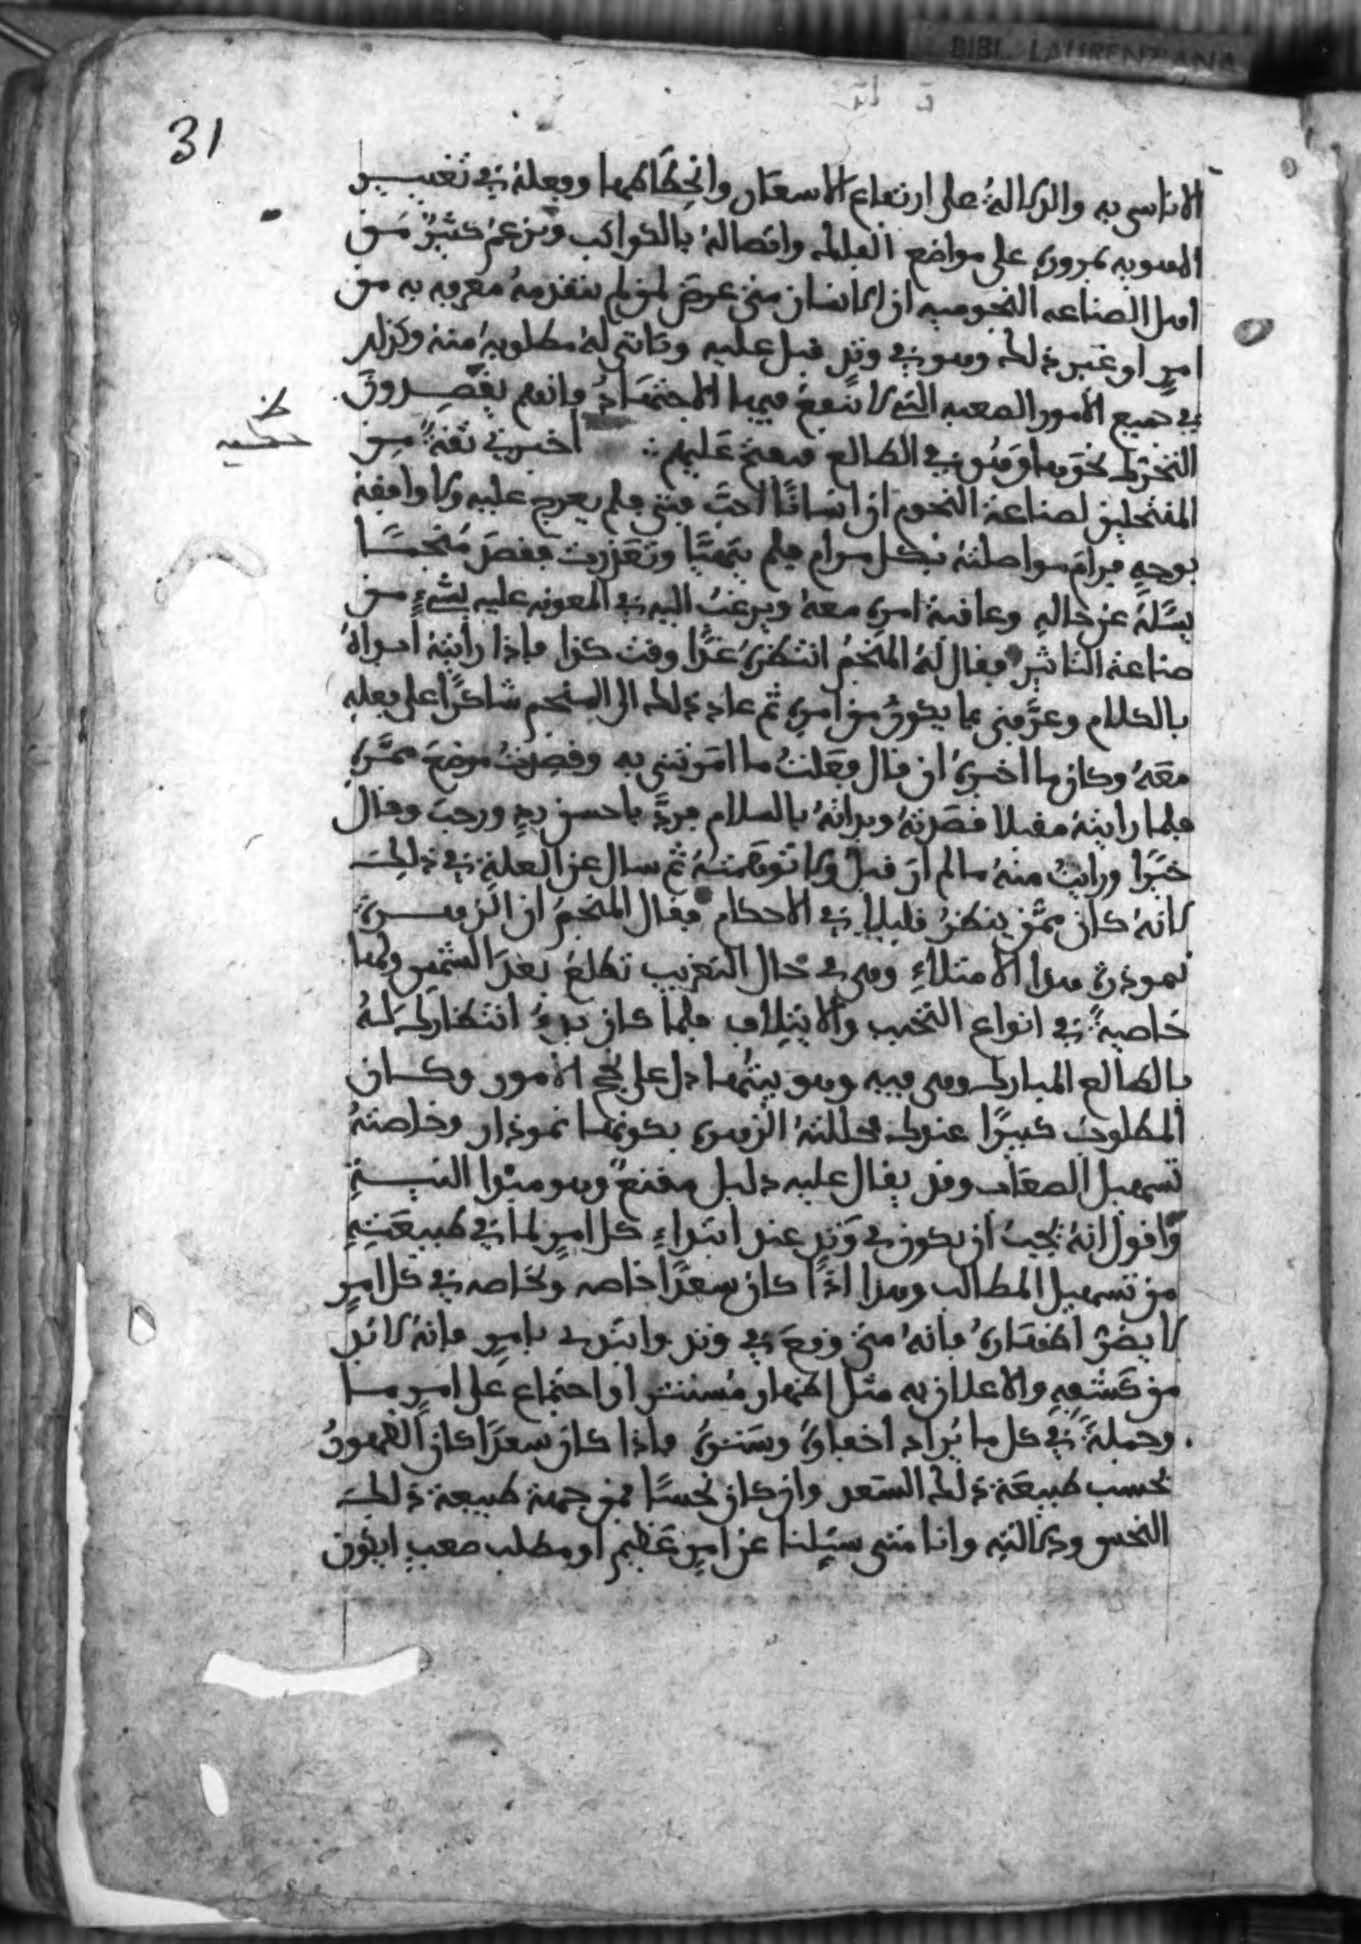 BIBL. LAURENZIANA
31
الاناسي به والدلالة على ارتفاع الاسعار وانحطاطها وفعله في تغيير
الاهوية بمروره على مواضع الفلك واتصاله بالكواكب وتزعم كثير من
اهل الصناعه النجوميه ان الانسان متى عرض لمن لم يتقدمه معرفه به من
امر او غير ذلك وهو في وتد قبل عليه وتاتي له مطلوبه منه وكذلك
في جميع الامور الصعبه التي لا ينفع فيها الاجتهاد فانهم يقصدون
التحرك نحوها وهو في الطالع فيفتح عليهم اخبرني ثقة من
حكيه
المنتحلين لصناعة النجوم ان انسانا احب فتى فلم يعرج عليه ولا وافقه
بوجه فرام مواصلته بكل مرام فلم يتهيا وتعذرت فقصد منجما
يسله عن حاله وعاقبة امره معه ويرغب اليه في المعونه عليه بشيء من
صناعة التاثير فقال له المنجم انتظره غدا وقت كذا فاذا رايته ابداه
بالكلام وعرفني بما يكون من امره ثم عاد ذلك الى المنجم شاكرا على فعله
معه وكان ما اخبره ان قال فعلت ما امرتني به وقصدت موضع ممره
فلما رايته مقبلا قصدته وبداته بالسلام فرد باحسن رد ورحب وقال
خيرا ورايت منه ما لم ار قبل ولا توهمته ثم سال عن العلة في ذلك
لانه كان ممن ينظر قليلا في الاحكام فقال المنجم ان الزهرة
نموذرة هذا الامتلاء وهي في حال التغريب تطلع بعد الشمس ولها
خاصية في انواع التحبب والايتلاف فلما كان بدء انتظارك له
بالطالع المبارك وهي فيه وهو بيتها دل على نجح الامور وكان
المطلوب كبيرا عندك فحللته الزهره بكونها نموذار وخاصته
تسهيل الصعاب وقد يقال عليه دليل مقنع وهو مبدا النسبة
واقول انه يجب ان يكون في وتد عند ابتداء كل امر لما في طبيعته
من تسهيل المطالب وهذا اذا كان سعدا خاصه وبخاصه في كل امر
لا يضر اظهاره فانه متى وقع في وتد وابتدى بامر فانه لا بد
من كشفه والاعلان به مثل اظهار مستتر او اجتماع على امر ما
وجملة في كل ما يراد اخفاوه وستره فاذا كان سعدا كان الظهور
بحسب طبيعة ذلك السعد وان كان نحسا فمن جهة طبيعة ذلك
النحس ودلالته وانا متى سيلنا عن امر عظيم او مطلب صعب ايكون